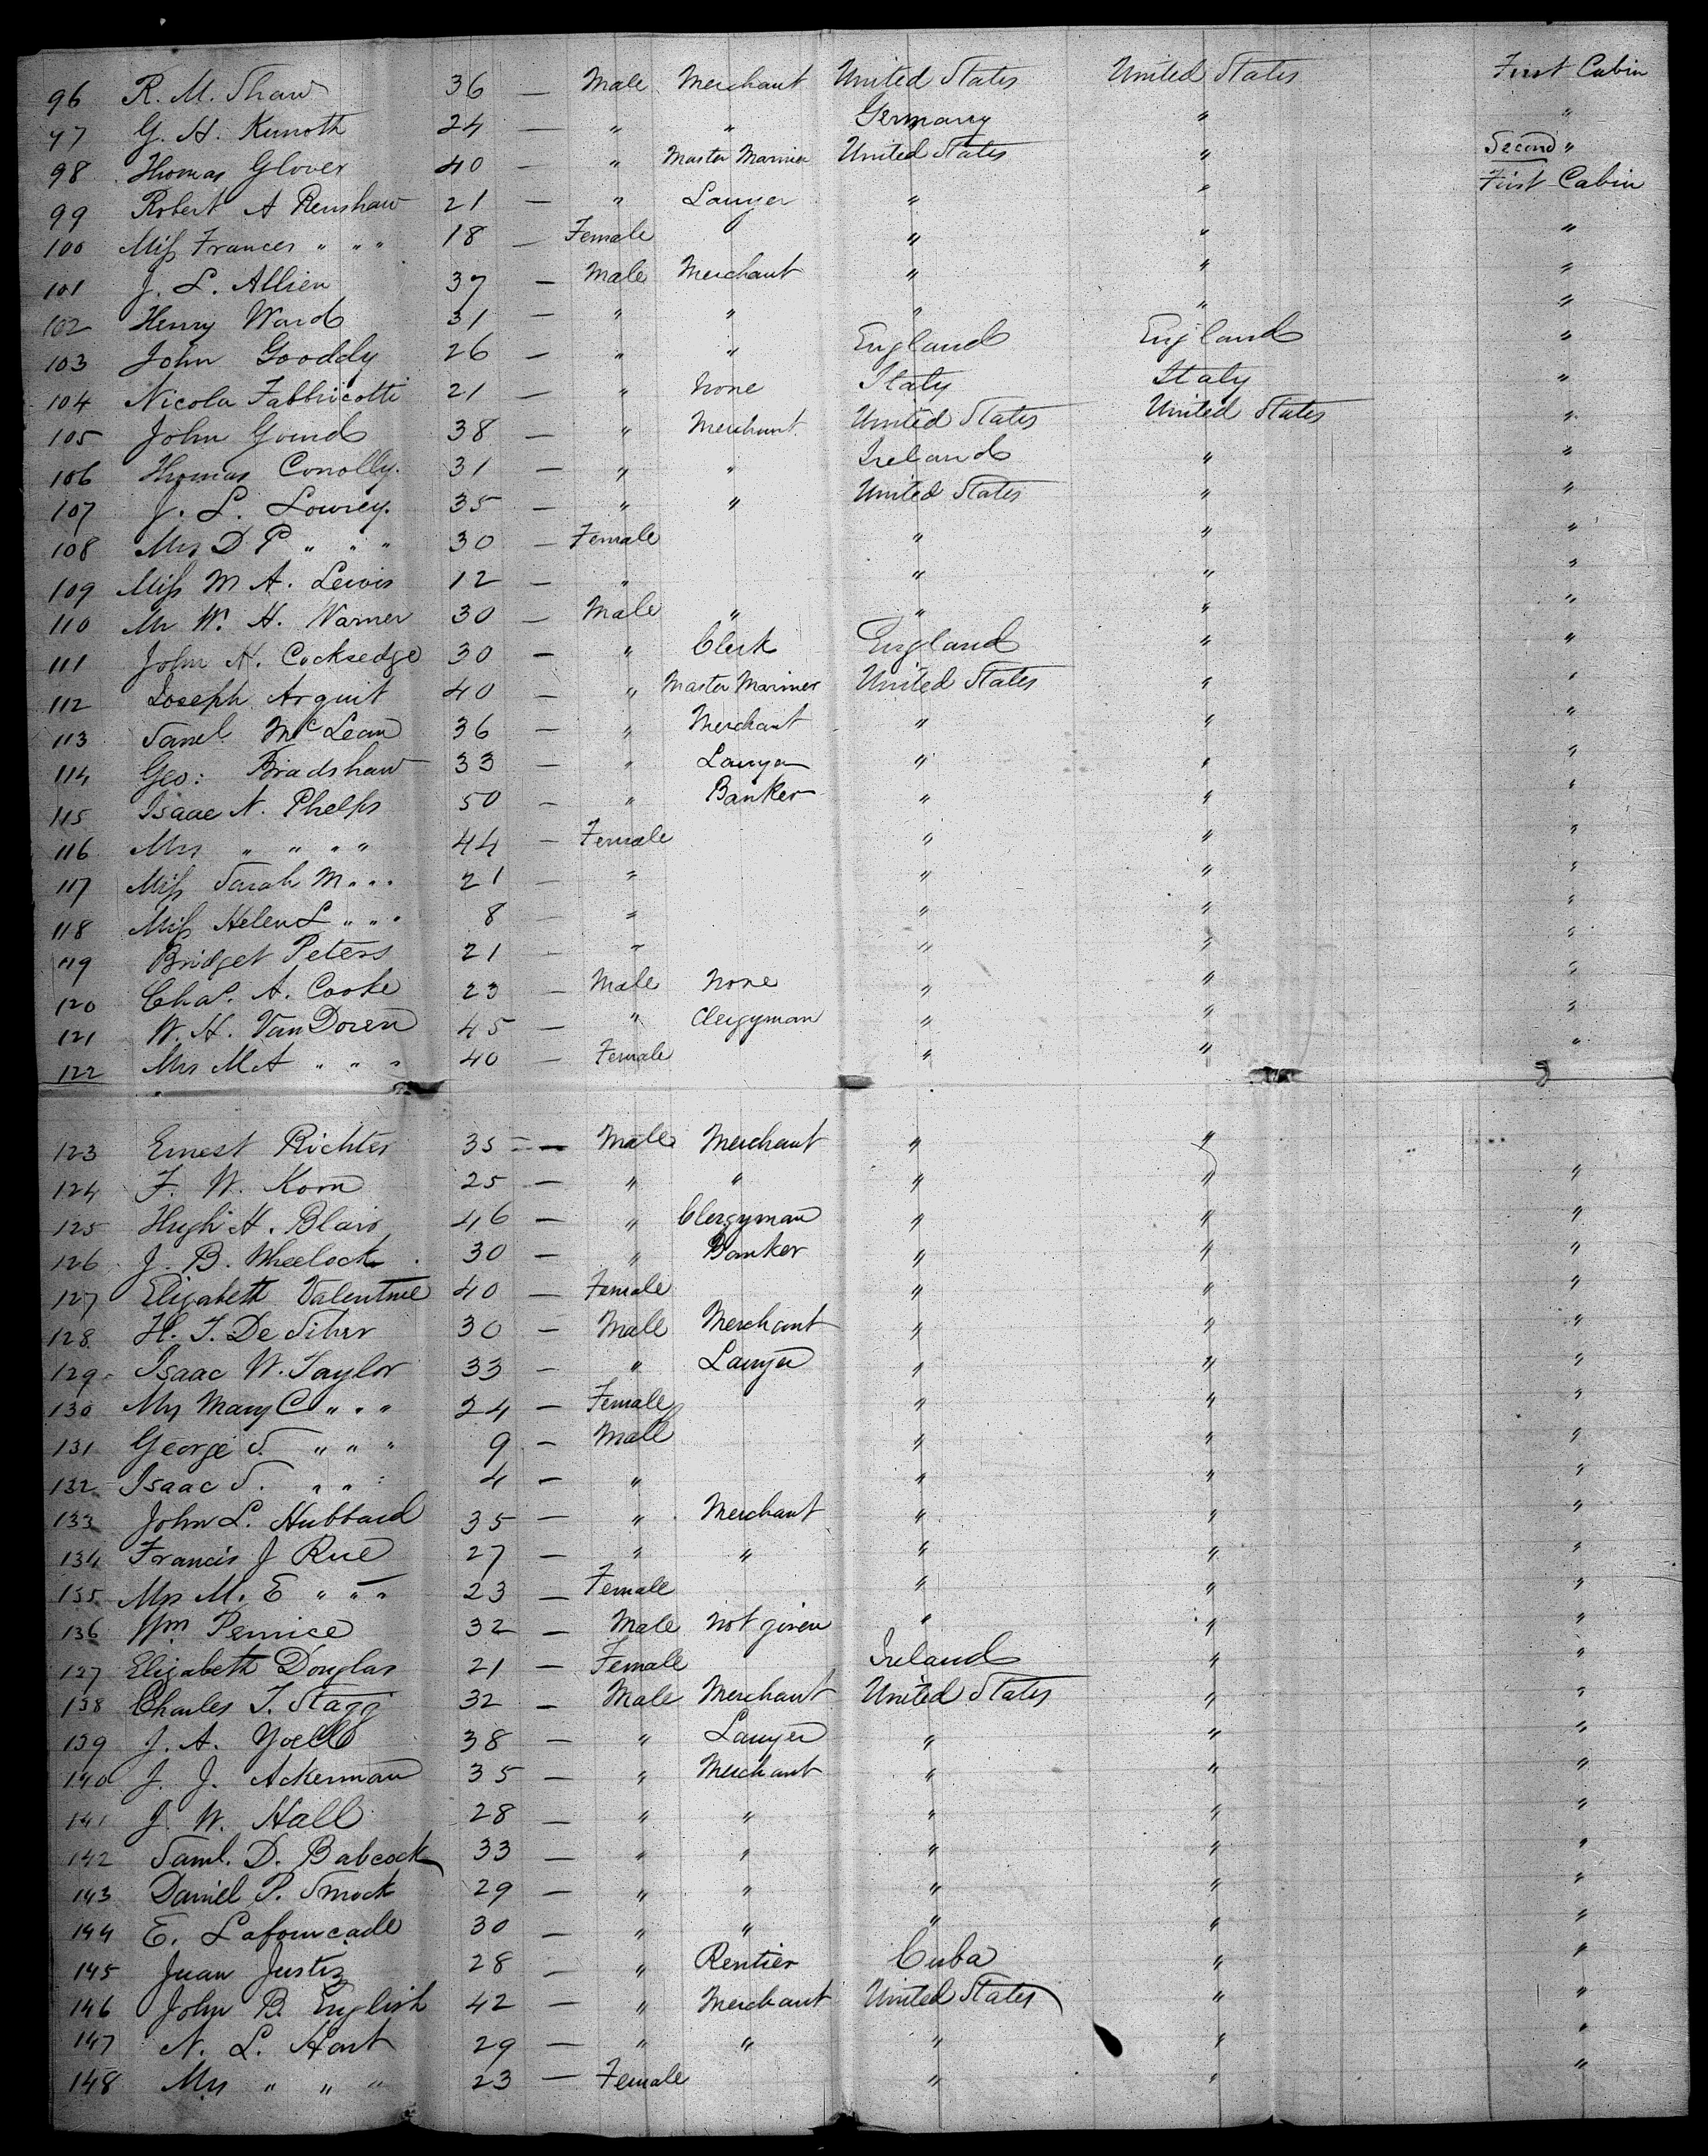 96 R. M. Shaw 36 — Male Merchant United States United States First Cabin
97 G. H. Kunoth 24 — " " Germany " "
98 Thomas Glover 40 — " Master Mariner United States " Second "
99 Robert A Renshaw 21 — " Lawyer " " First Cabin
100 Miss Frances " " " 18 — Female " " "
101 J. L. Allien 37 — Male Merchant " " "
102 Henry Ward 31 — " " " " "
103 John Gooddy 26 — " " England England "
104 Nicola Fabbricotti 21 — " None Italy Italy "
105 John Gourd 38 — " Merchant United States United States "
106 Thomas Conolly. 31 — " " Ireland " "
107 J. L. Lowrey. 35 — " " United States " "
108 Mrs D P " " " 30 — Female " " "
109 Miss M A. Lewis 12 — " " " "
110 Mr W. H. Warner 30 — Male " " " "
111 John H. Cocksedge 30 — " Clerk England " "
112 Joseph Arguit 40 — " Master Mariner United States " "
113 Saml. McLean 36 — " Merchant " " "
114 Geo: Bradshaw 33 — " Lawyer " " "
115 Isaac N. Phelps 50 — " Banker " " "
116 Mrs " " " " 44 — Female " " "
117 Miss Sarah M " " " 21 — " " " "
118 Miss Helen L " " " 8 — " " " "
119 Bridget Peters 21 — " " " "
120 Chas. A. Cooke 23 — Male None " " "
121 W. H. Van Doren 45 — " Clergyman " " "
122 Mrs M A " " " 40 — Female " " "
123 Ernest Richter 35 — Male Merchant " "
124 F. W. Korn 25 — " " " " "
125 Hugh H. Blair 46 — " Clergyman " " "
126 J. B. Wheelock 30 — " Banker " " "
127 Elizabeth Valentine 40 — Female " " "
128 H. T. De Silver 30 — Male Merchant " " "
129 Isaac W. Taylor 33 — " Lawyer " " "
130 Mrs Mary C " " " 24 — Female " " "
131 George S. " " " 9 — Male " " "
132 Isaac S. " " " 4 — " " " "
133 John L. Hubbard 35 — " Merchant " " "
134 Francis J Rue 27 — " " " " "
135 Mrs M. E " " " 23 — Female " " "
136 Wm Pernice 32 — Male not given " " "
137 Elizabeth Douglas 21 — Female Ireland " "
138 Charles T. Stagg 32 — Male Merchant United States " "
139 J. A. Yoell 38 — " Lawyer " " "
140 J. J. Ackerman 35 — " Merchant " " "
141 J. W. Hall 28 — " " " " "
142 Saml. D. Babcock 33 — " " " " "
143 Daniel P. Smock 29 — " " " " "
144 E. Lafourcade 30 — " " " " "
145 Juan Justiz 28 — " Rentier Cuba " "
146 John B. English 42 — " Merchant United States " "
147 N. L. Hart 29 — " " " " "
148 Mrs " " " 23 — Female " " "